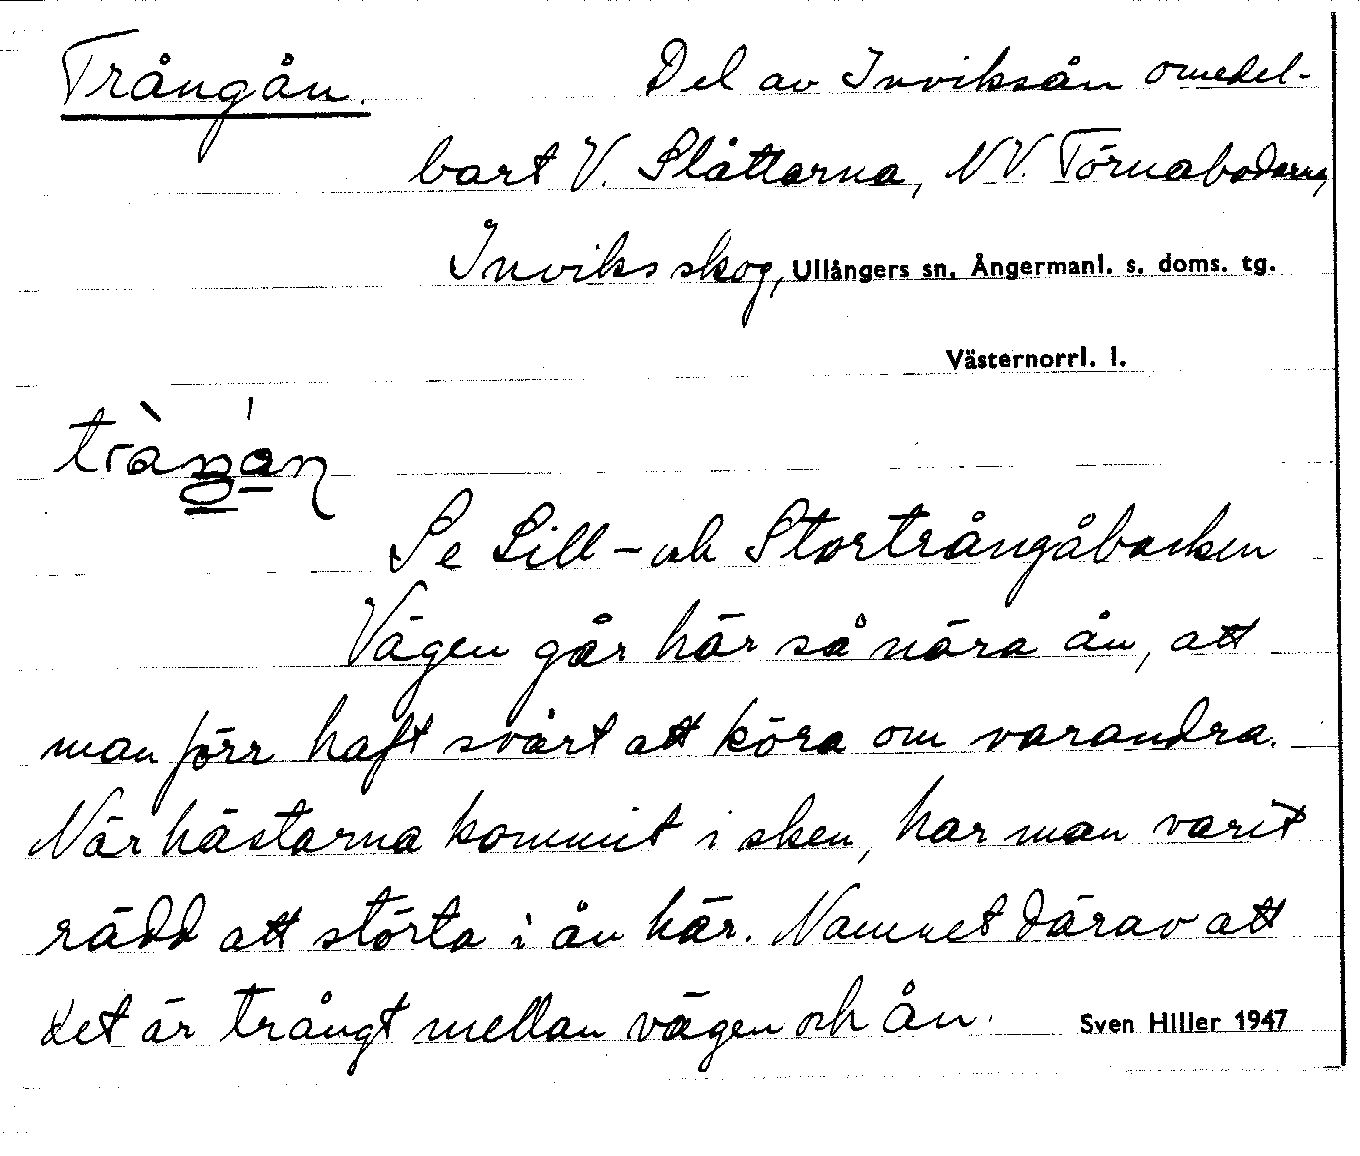 Trångån.
Del av Inviksån omedel-
bart V. Slåttarna, NV. Törnabodarna,
Inviks skog, Ullångers sn. Ångermanl. s. doms. tg.
Västernorrl. l.
Se Lill- och Stortrångåbacken
Vägen går här så nära ån, att
man förr haft svårt att köra om varandra.
När hästarna kommit i sken, har man varit
rädd att störta i ån här. Namnet därav att
det är trångt mellan vägen och ån.
Sven Hiller 1947